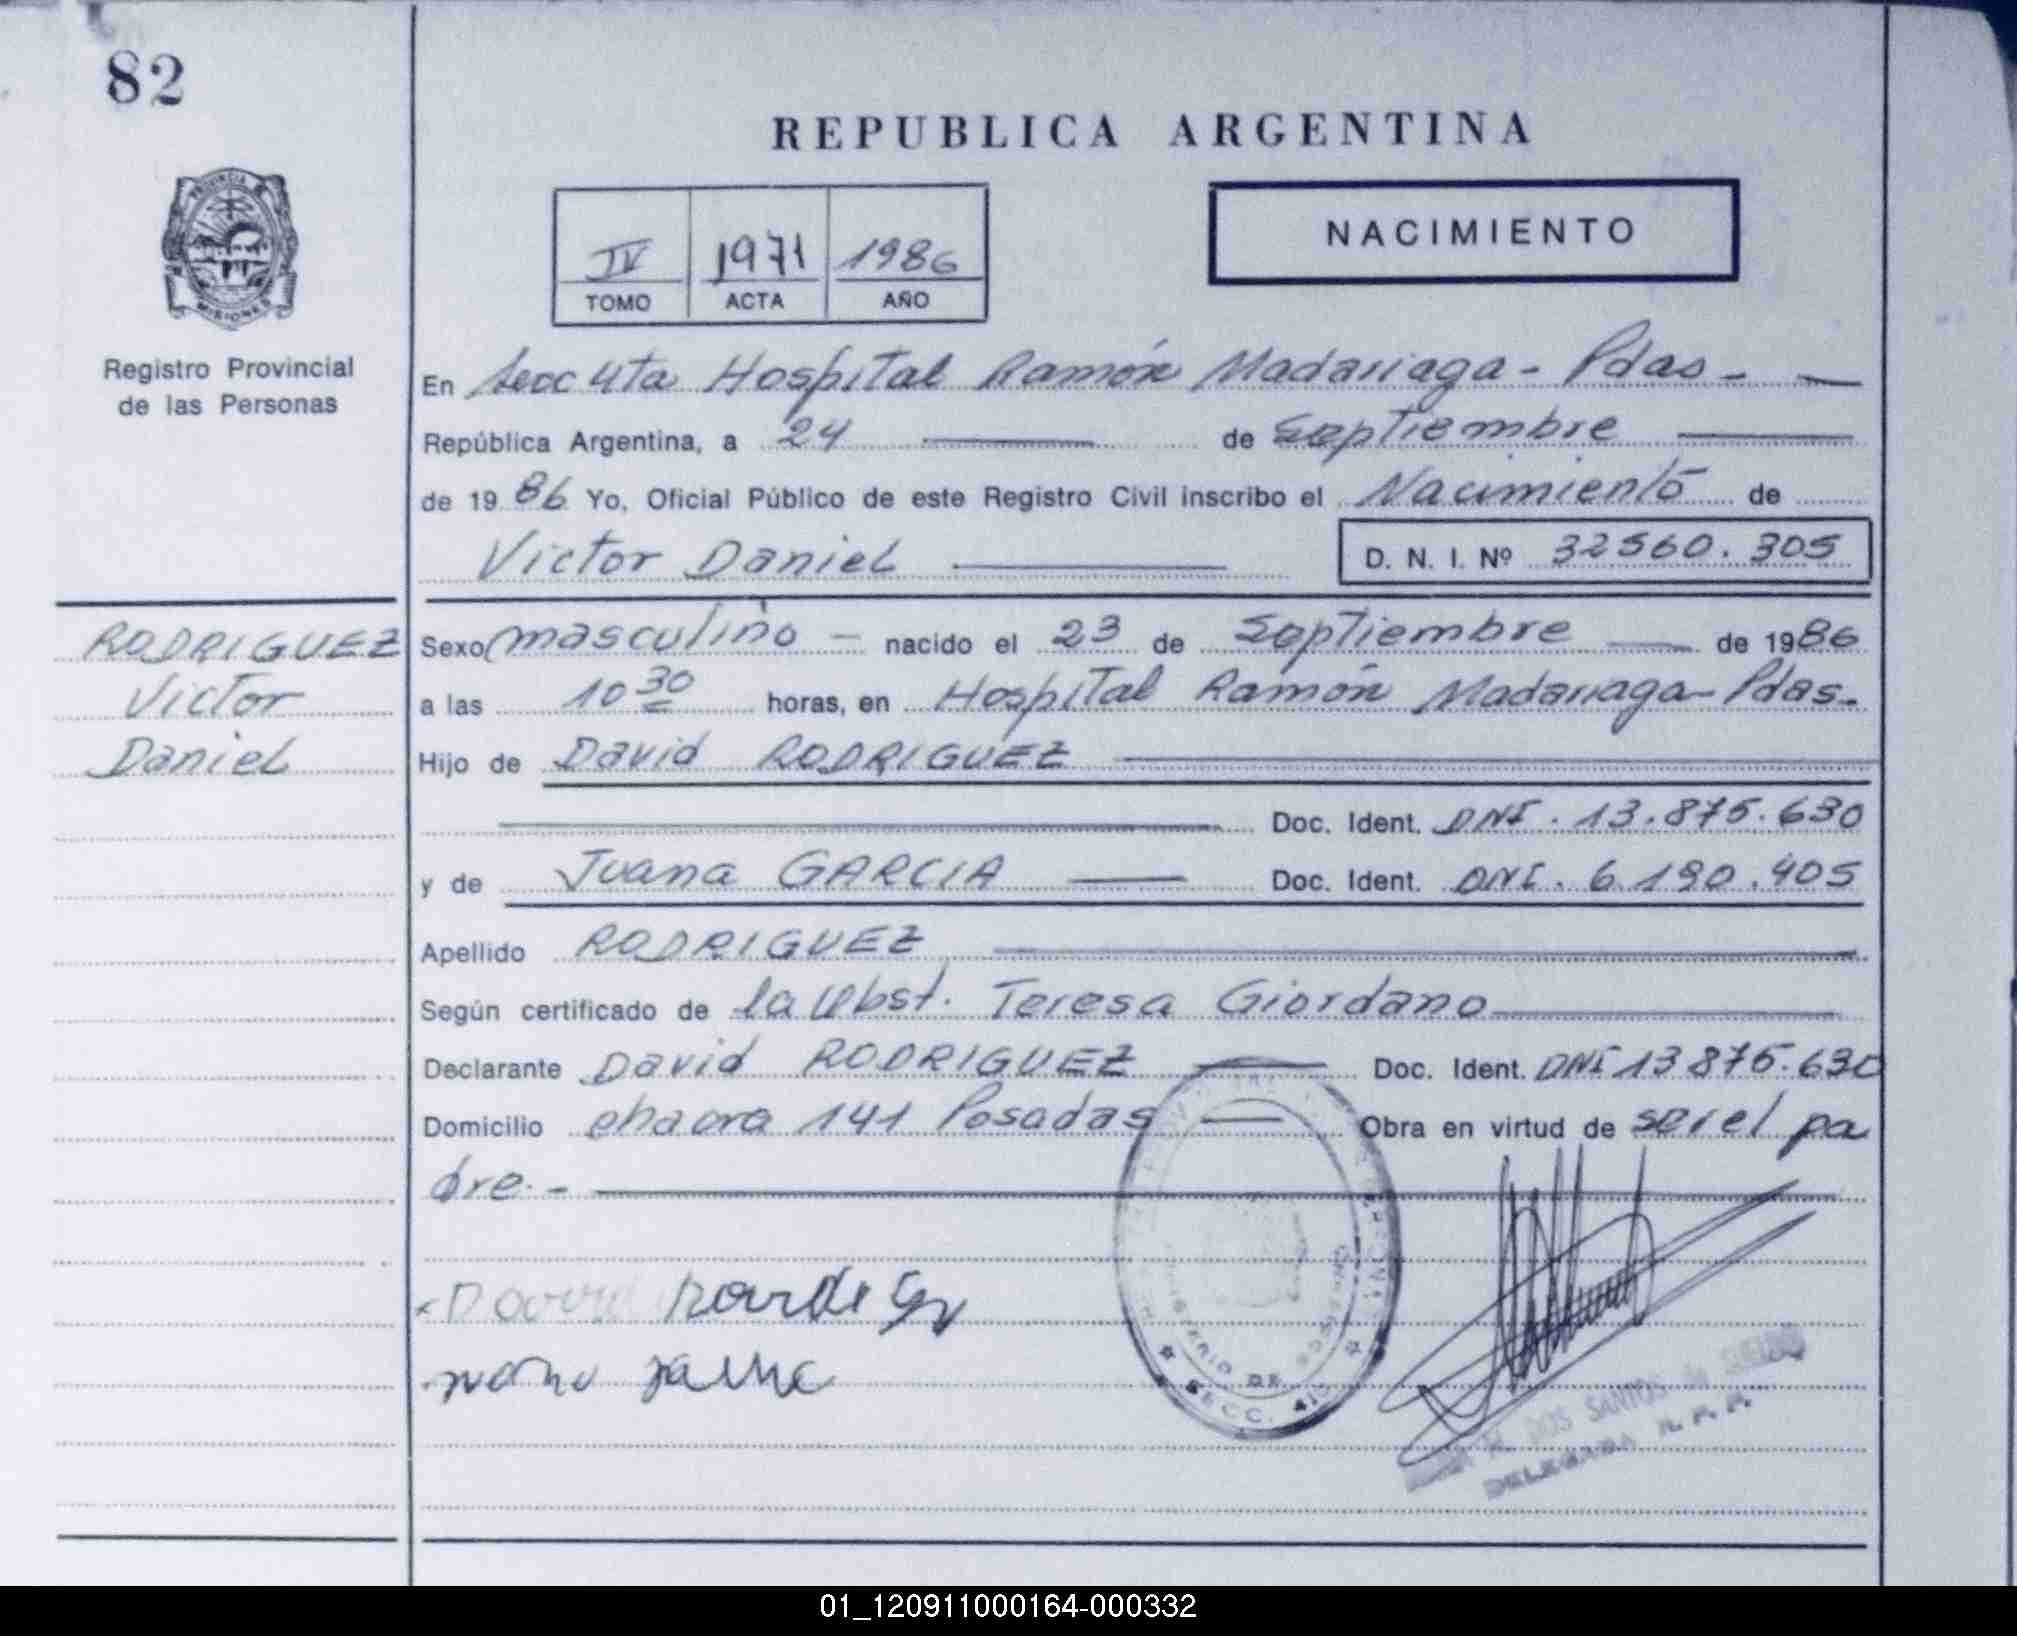 82
REPUBLICA ARGENTINA
PROVINCIA DE
MISIONES
Registro Provincial
de las Personas
IV 1971 1986
TOMO ACTA AÑO
NACIMIENTO
En Secc 4ta Hospital Ramón Madariaga - Pdas -
República Argentina, a 24 de Septiembre
de 1986 Yo, Oficial Público de este Registro Civil inscribo el Nacimiento de
Victor Daniel D. N. I. Nº 32560.305
RODRIGUEZ
Victor
Daniel
Sexo masculino - nacido el 23 de Septiembre de 1986
a las 10 30 horas, en Hospital Ramón Madariaga - Pdas.
Hijo de David RODRIGUEZ
Doc. Ident. DNI. 13.875.630
y de Juana GARCIA Doc. Ident. DNI. 6.190.405
Apellido RODRIGUEZ
Según certificado de la Obst. Teresa Giordano
Declarante David RODRIGUEZ Doc. Ident. DNI 13875.630
Domicilio chacra 141 Posadas Obra en virtud de ser el pa
dre. -
MINISTERIO DE
SECC. 4ta
DOS SANTOS de
DELEGADA R. P. P.
01_120911000164-000332